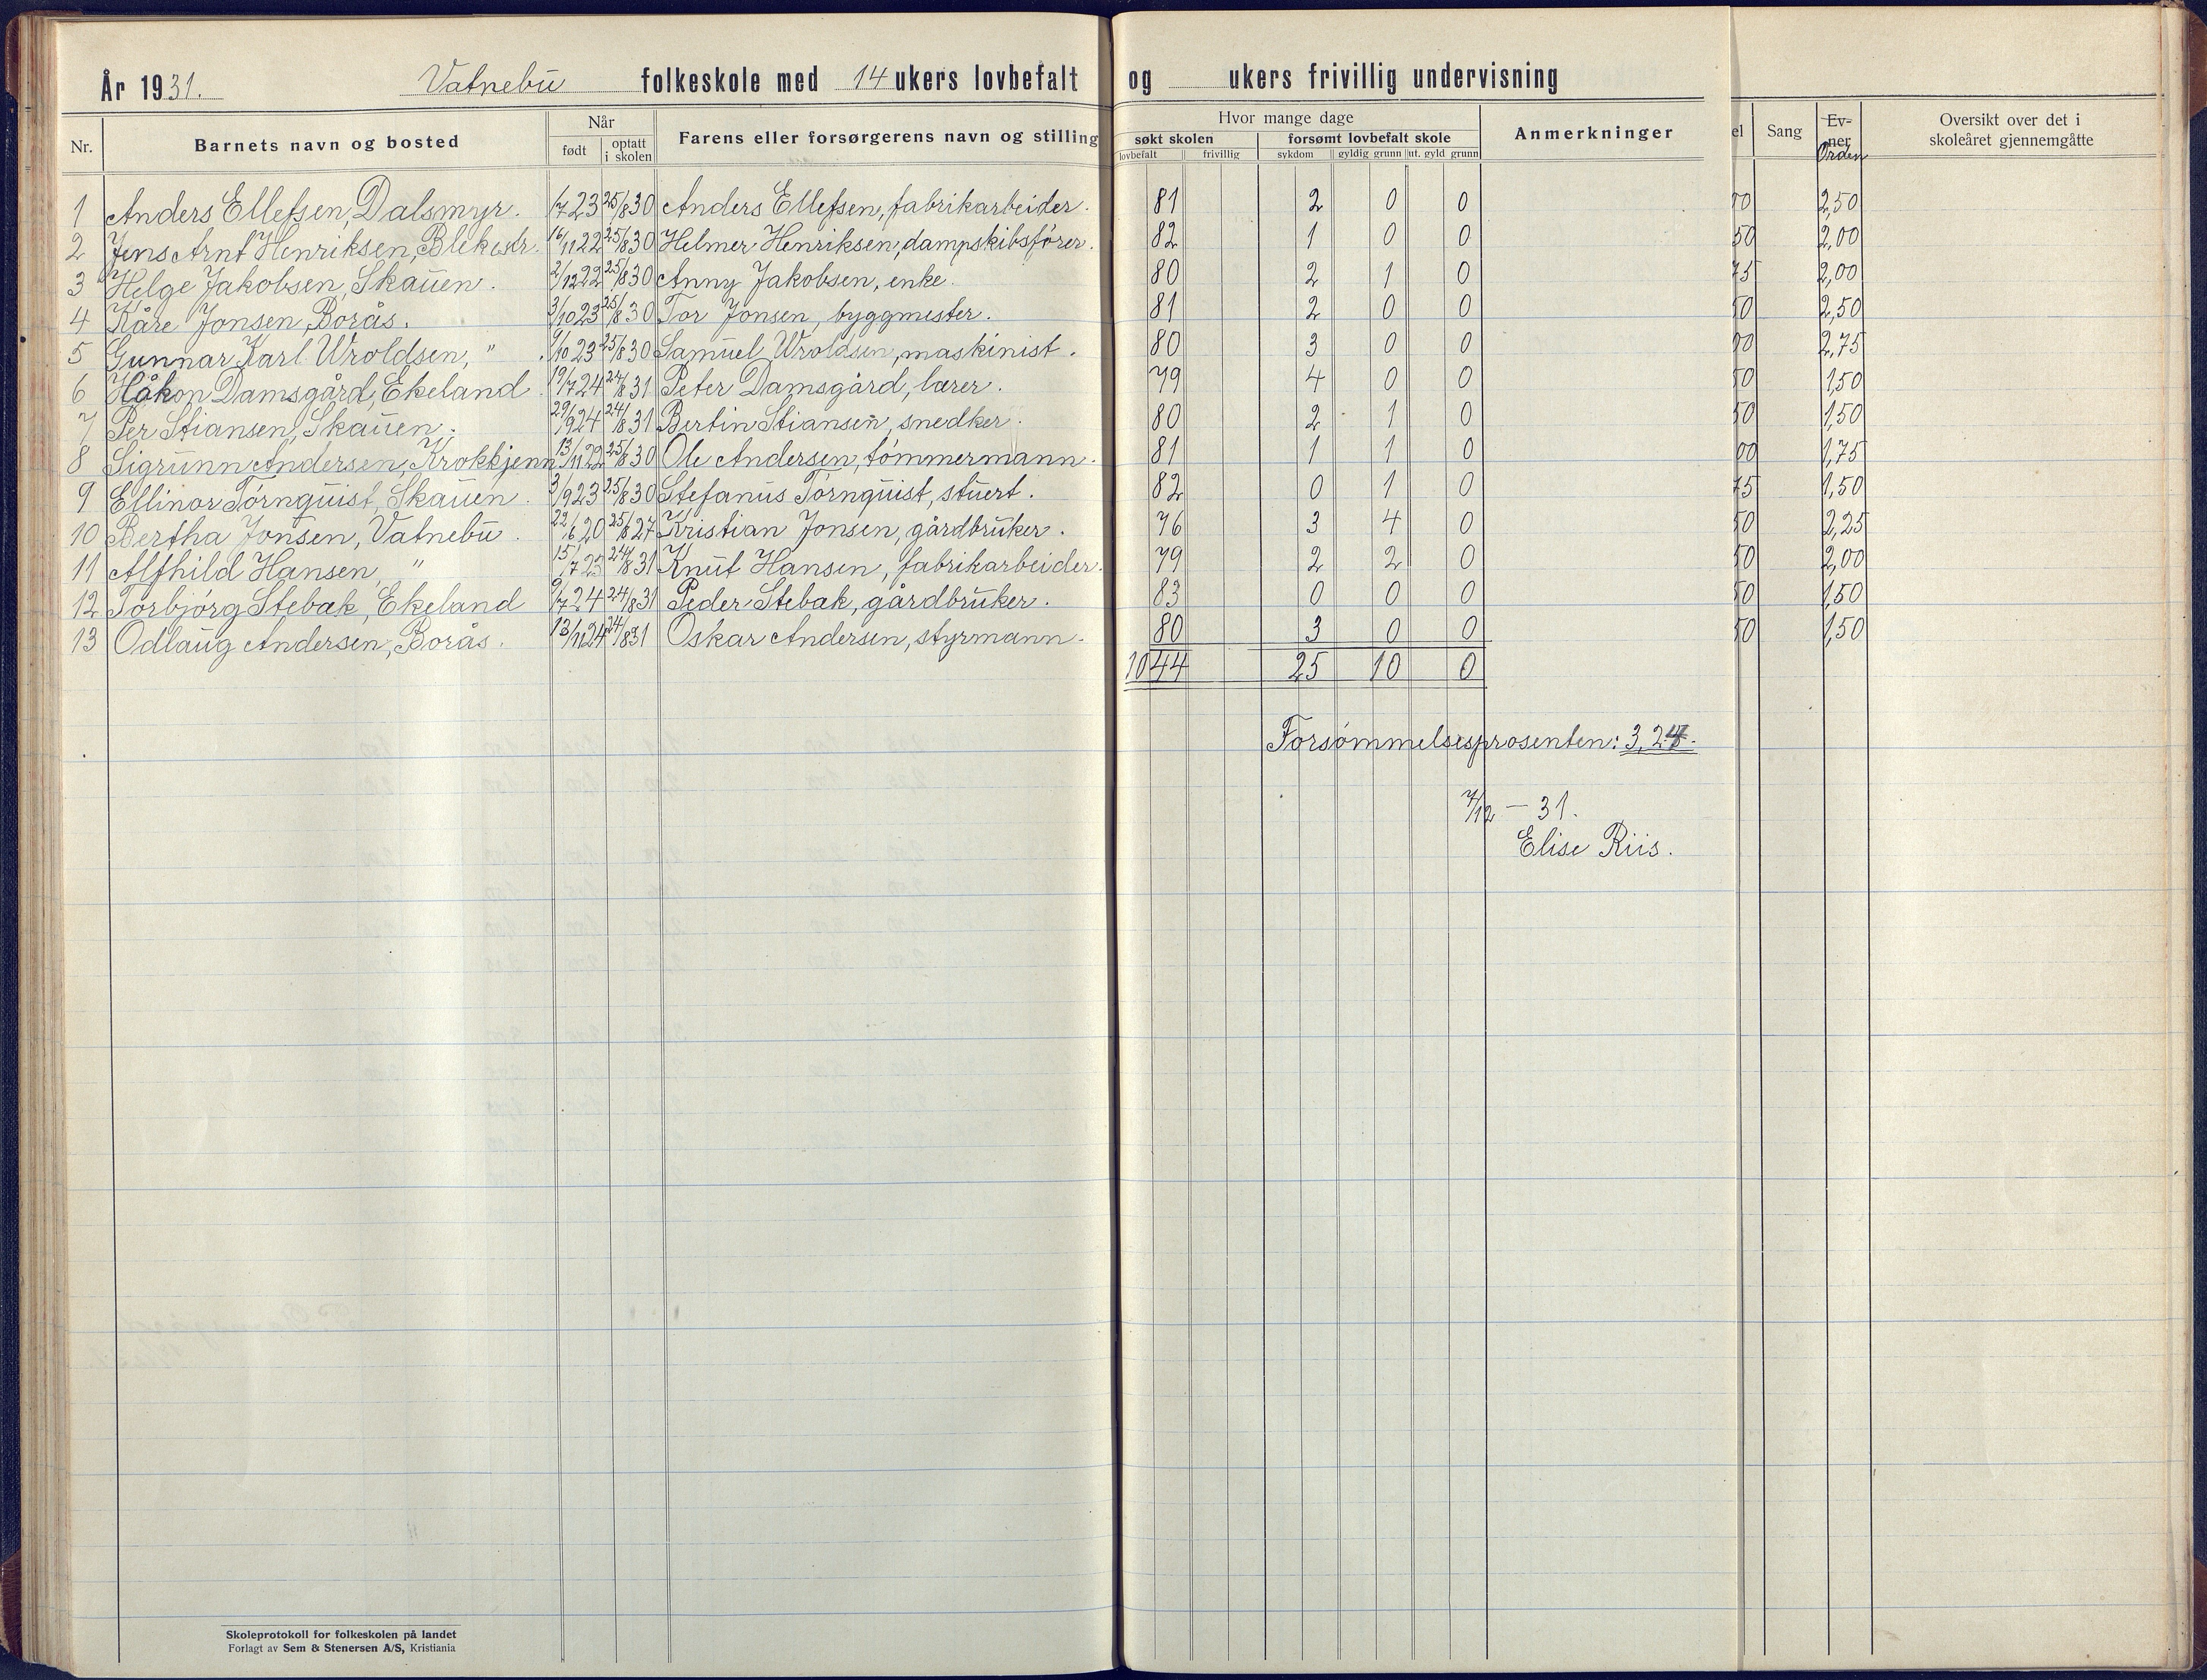 År 1931. Vatnebu folkeskole med 14 ukers lovbefalt og ukers frivillig undervisning
Nr. Barnets navn og bosted Når født optatt i skolen Farens eller forsørgerens navn og stilling Hvor mange dage søkt skolen lovbefalt frivillig forsømt lovbefalt skole sykdom gyldig grunn ut. gyld grunn Anmerkninger el Sang Ev-ner Orden Oversikt over det i skoleåret gjennemgåtte
1 Anders Ellefsen, Dalsmyr. 1/7 23 25/8 30 Anders Ellefsen, fabrikarbeider. 81 2 0 0 00 2,50
2 Jens Arnt Henriksen, Blekestr. 16/11 22 25/8 30 Helmer Henriksen, dampskibsfører. 82 1 0 0 50 2,00
3 Helge Jakobsen, Skauen. 2/12 22 25/8 30 Anny Jakobsen, enke. 80 2 1 0 75 2,00
4 Kåre Jonsen, Borås. 3/10 23 25/8 30 Tor Jonsen, byggmester. 81 2 0 0 50 2,50
5 Gunnar Karl Wroldsen, " . 9/10 23 25/8 30 Samuel Wroldsen, maskinist. 80 3 0 0 00 2,75
6 Håkon Damsgård, Ekeland. 19/7 24 24/8 31 Peter Damsgård, lærer. 79 4 0 0 50 1,50
7 Per Stiansen, Skauen. 29/9 24 24/8 31 Bertin Stiansen, snedker. 80 2 1 0 50 1,50
8 Sigrunn Andersen, Krokkjenn 13/11 22 25/8 30 Ole Andersen, tømmermann. 81 1 1 0 00 1,75
9 Ellinor Törnquist, Skauen. 3/9 23 25/8 30 Stefanus Törnquist, stuert. 82 0 1 0 75 1,50
10 Bertha Jonsen, Vatnebu. 22/6 20 25/8 27 Kristian Jonsen, gårdbruker. 76 3 4 0 50 2,25
11 Alfhild Hansen, " 15/7 23 24/8 31 Knut Hansen, fabrikarbeider. 79 2 2 0 50 2,00
12 Torbjørg Stebak, Ekeland 9/7 24 24/8 31 Peder Stebak, gårdbruker. 83 0 0 0 50 1,50
13 Odlaug Andersen, Borås. 13/11 24 24/8 31 Oskar Andersen, styrmann. 80 3 0 0 50 1,50
1044 25 10 0
Forsømmelsesprosenten: 3,24.
7/12 – 31.
Elise Riis.
Skoleprotokoll for folkeskolen på landet
Forlagt av Sem & Stenersen A/S, Kristiania